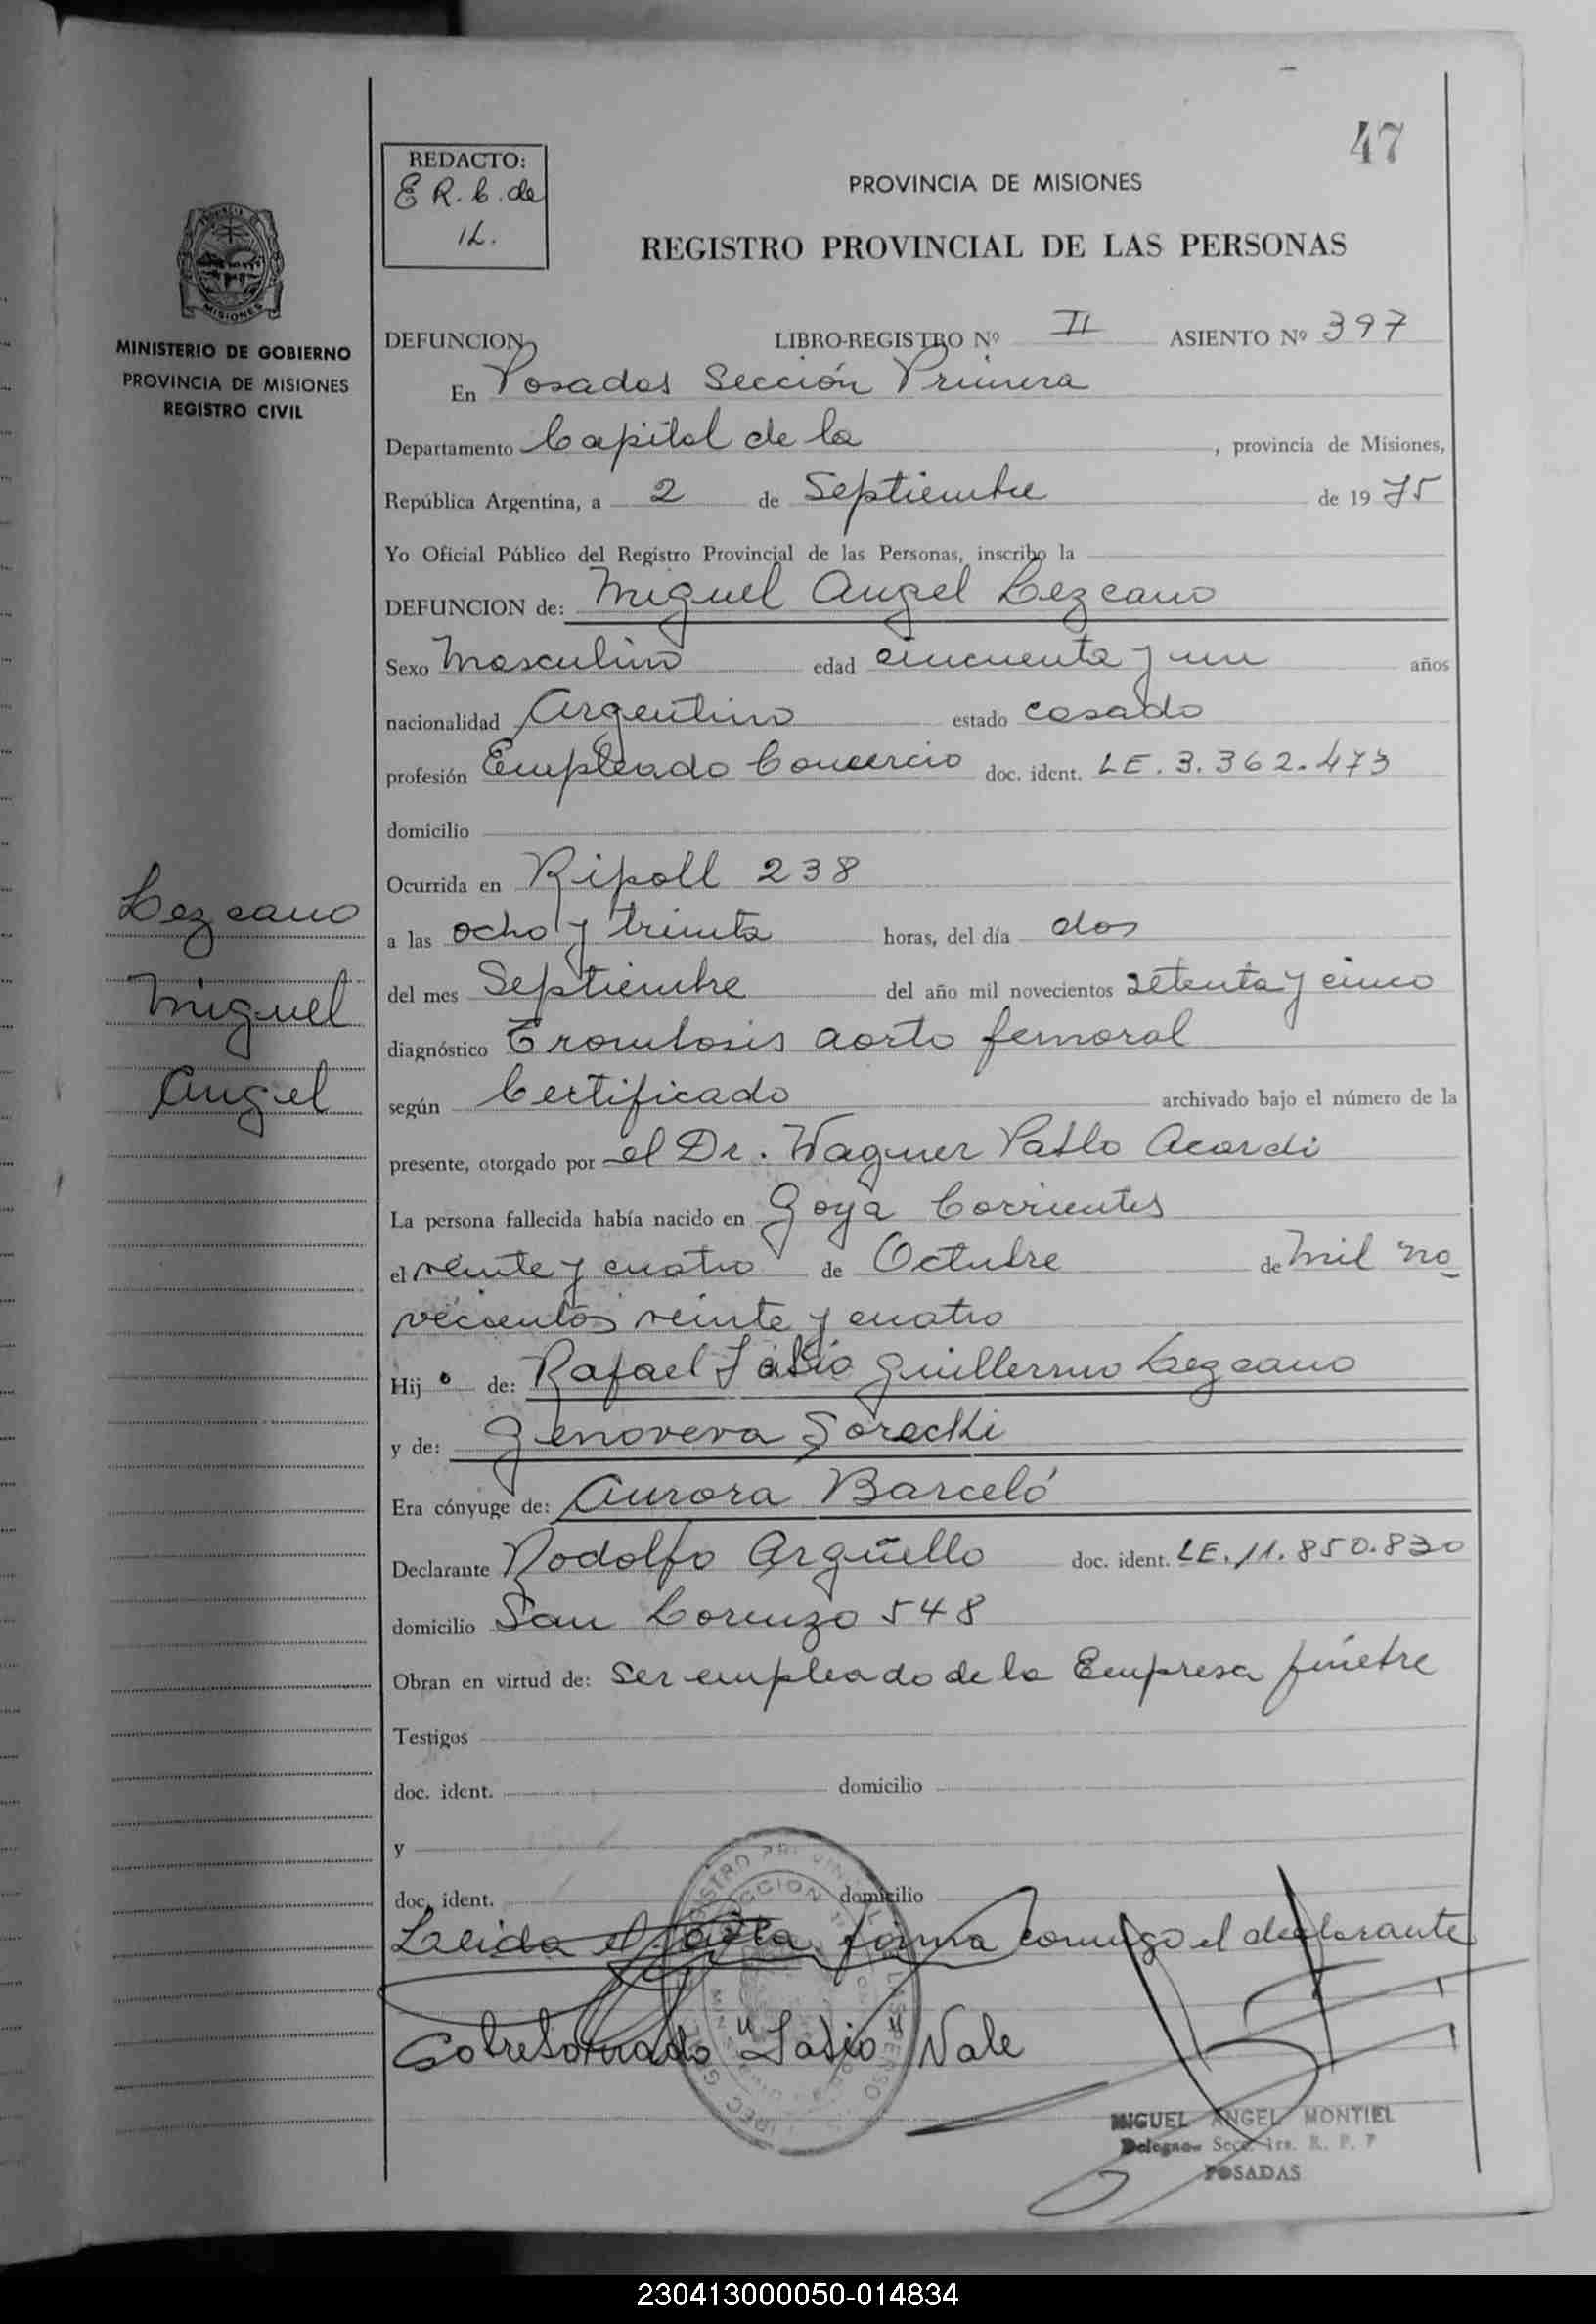 47
REDACTO:
E R. C. de
PROVINCIA DE MISIONES
REGISTRO PROVINCIAL DE LAS PERSONAS
MISIONES
MINISTERIO DE GOBIERNO
PROVINCIA DE MISIONES
REGISTRO CIVIL
DEFUNCION LIBRO-REGISTRO Nº II ASIENTO Nº 397
En Posadas Sección Primera
Departamento Capital de la , provincia de Misiones,
República Argentina, a 2 de Septiembre de 1975
Yo Oficial Público del Registro Provincial de las Personas, inscribo la
DEFUNCION de: Miguel Angel Lezcano
Sexo Masculino edad cincuenta y un años
nacionalidad Argentino estado casado
profesión Empleado Comercio doc. ident. LE. 3.362.473
domicilio
Ocurrida en Ripoll 238
Lezcano
Miguel
Angel
a las ocho y treinta horas, del día dos
del mes Septiembre del año mil novecientos setenta y cinco
diagnóstico Trombosis aorto femoral
según Certificado archivado bajo el número de la
presente, otorgado por el Dr. Wagner Pablo Acardi
La persona fallecida había nacido en Goya Corrientes
el veinte y cuatro de Octubre de mil no
vecientos veinte y cuatro
Hijo de: Rafael Guillermo Lezcano
y de: Genoveva
Era cónyuge de: Aurora Barceló
Declarante Rodolfo Argüello doc. ident. LE. 11.850.830
domicilio San Lorenzo 548
Obran en virtud de: Ser empleado de la Empresa fúnebre
Testigos
doc. ident. domicilio
y
doc. ident. domicilio
Leida el acta, firma conmigo el declarante
Sobreborrado Vale
MIGUEL ANGEL MONTIEL
POSADAS
230413000050-014834